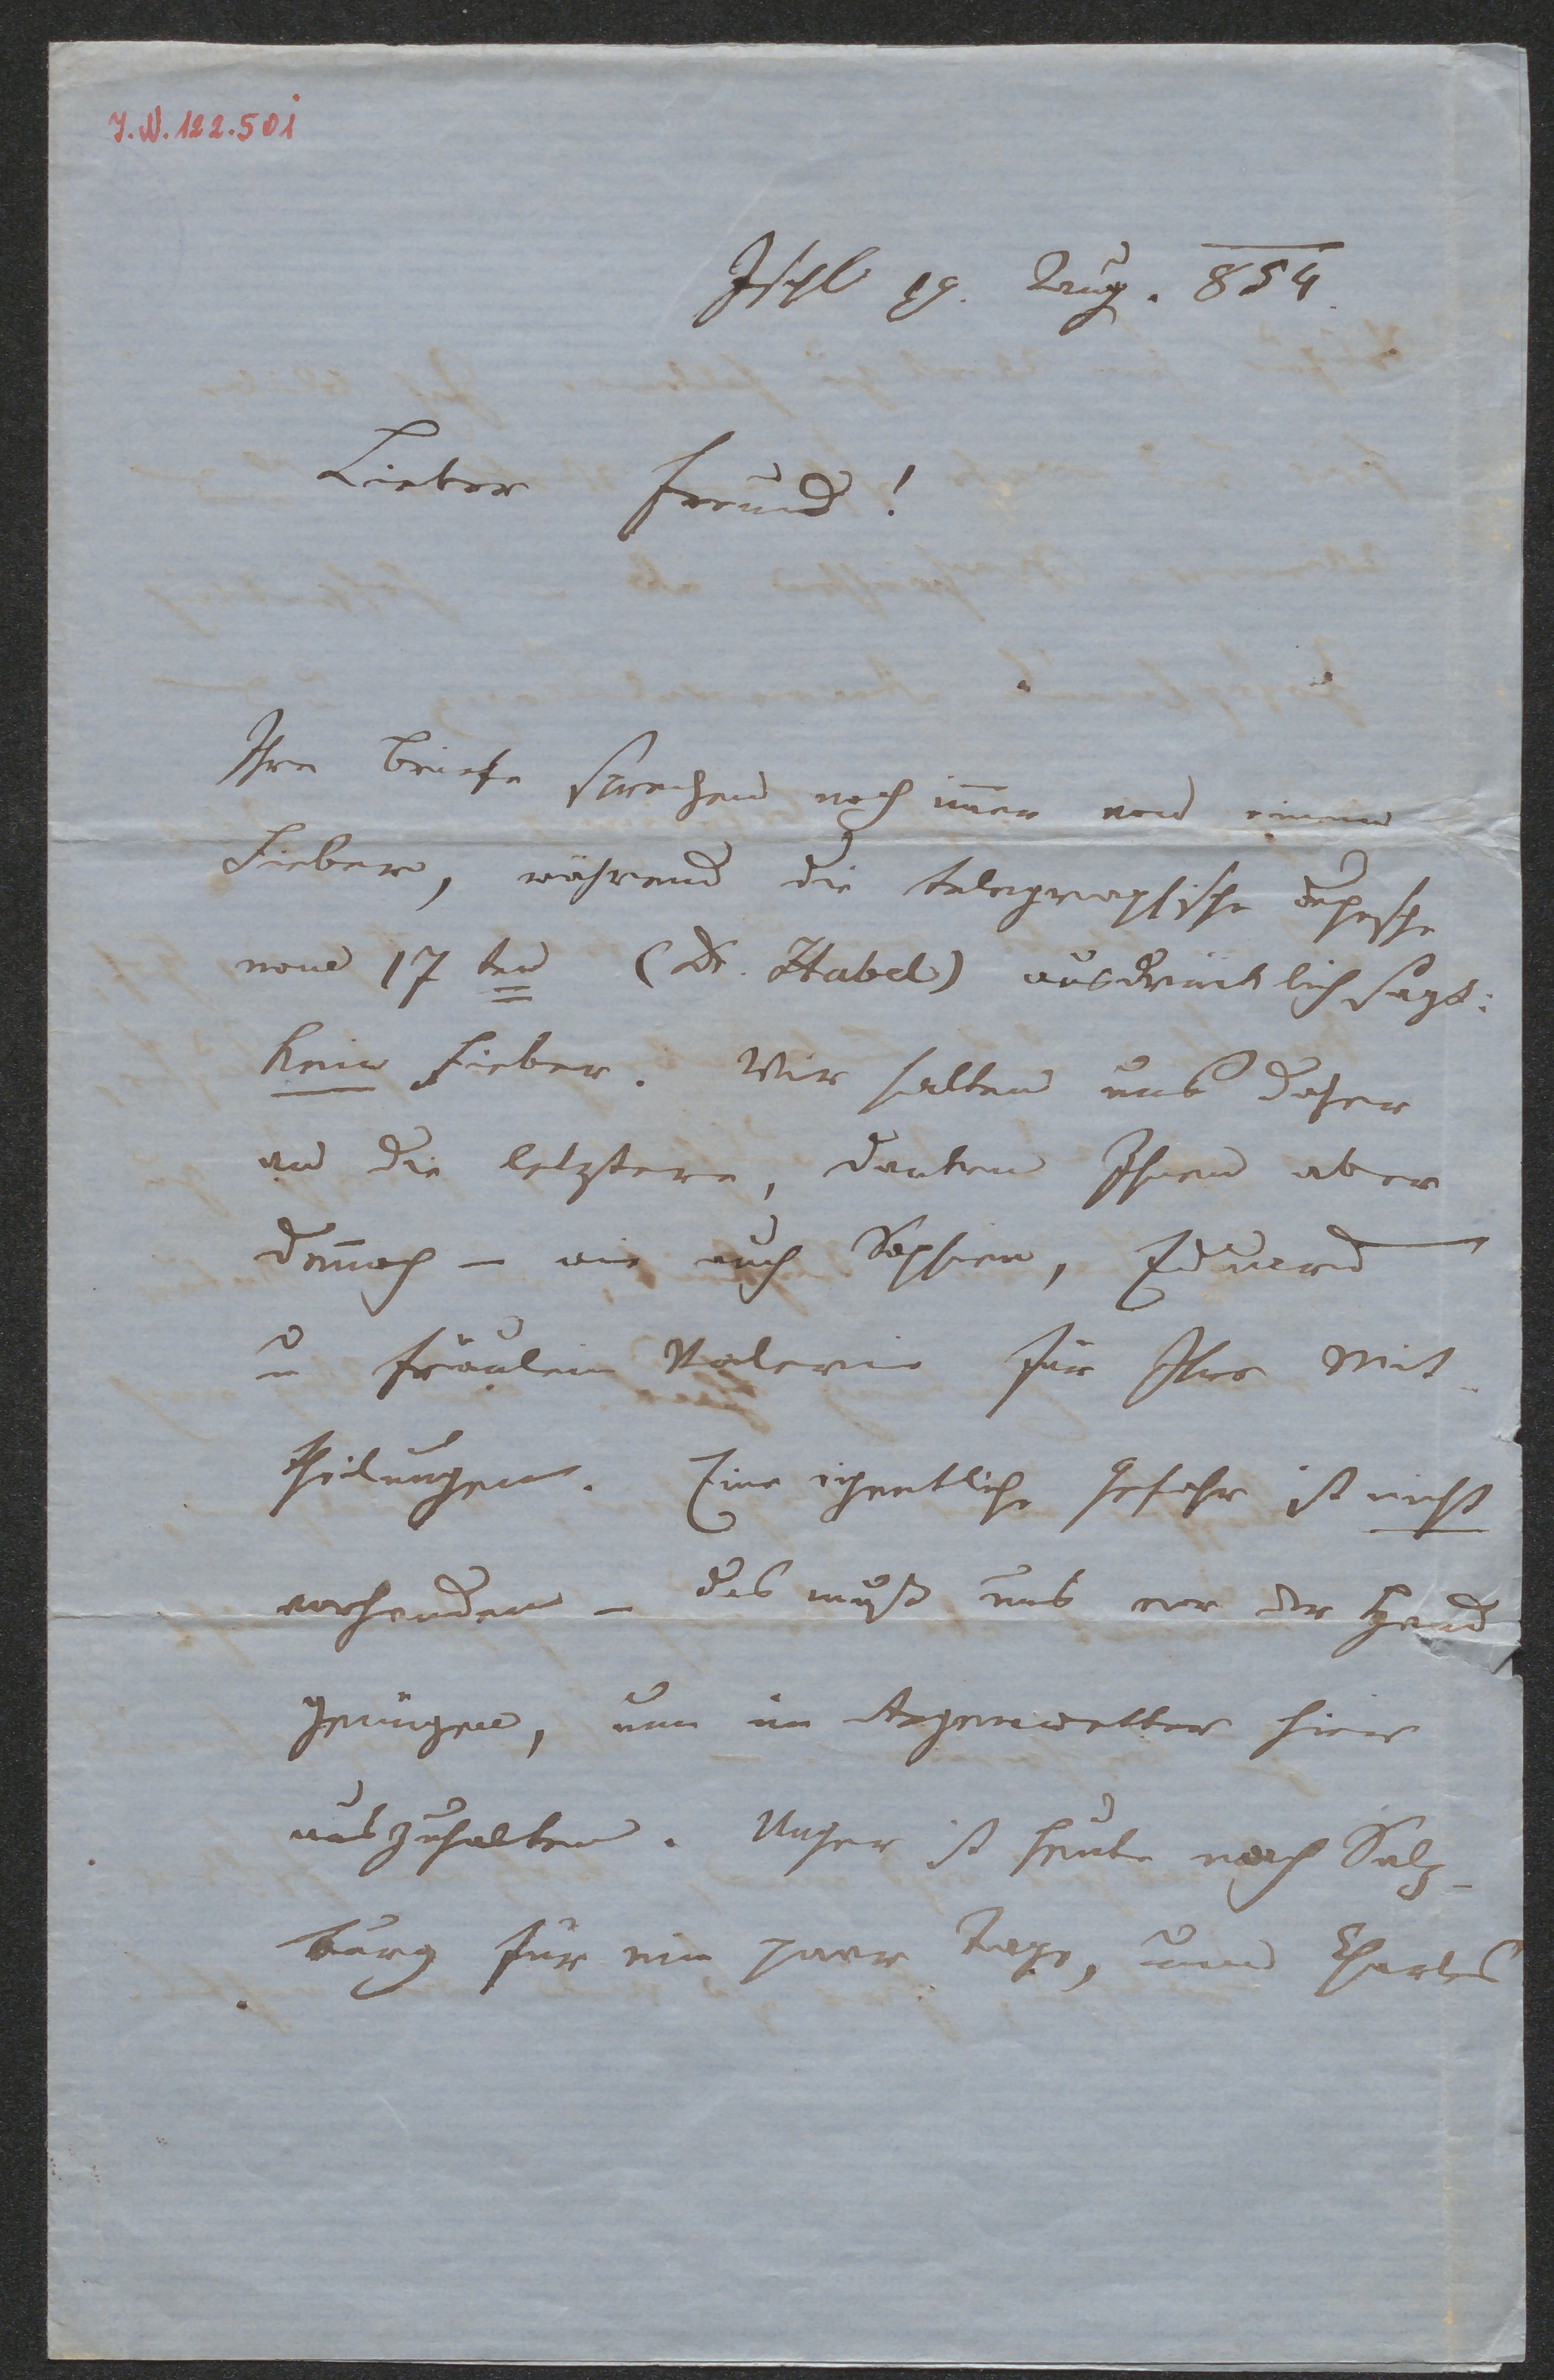 J.N. 122.501
Ischl 19. Aug. 854.
Lieber Freund!
Ihre Briefe sprechen noch im̄er von einem
Fieber, während die telegraphische Depesche
vom 17ten (Dr. Habel) ausdrücklich sagt:
kein Fieber. Wir halten uns daher
an die letztere, danken Ihnen aber
den̄och – wie auch Sophien, Eduard
u Fräulein Valerie für Ihre Mit-
theilungen. Eine eigentliche Gefahr ist nicht
vorhanden – das muß uns vor der Hand
genügen, um im Regenwetter hier
auszuhalten. Unger ist heute nach Salz-
burg für ein paar Tage, und Charles